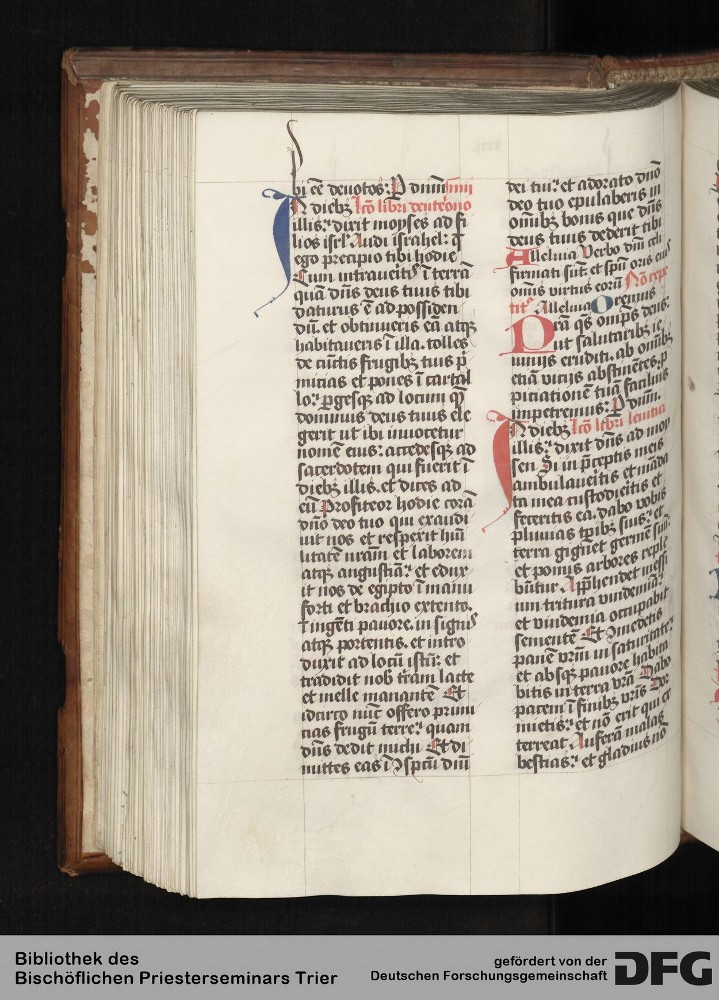 bi eē deuotos: P dnm̄ iiii
IN diebꝫ lc̄o libri deuterōno
illis: dixit moyses ad fi
lios isrl. Audi israhel: q̄
ego precipio tibi hodie
Cum intraueitis ī terrā
quā dn̄s deus tuus tibi
daturus ē ad possiden
dū. et obtinueris eā atqꝫ
habitaueris ī illa. tolles
de cūctis frugibꝫ tuis p̄
micias et pones ī cartal
lo: ꝑgesqꝫ ad locum q̄
dominus deus tuus ele
gerit ut ibi inuocetur
nomē eius: accedesqꝫ ad
sacerdotem qui fuerit ī
diebꝫ illis. et dices ad
eū Profiteor hodie corā
dn̄o deo tuo qui exaudi
uit nos et respexit hūi
litatē nr̄am et laborem
atqꝫ angustiā: et edux
it nos de egipto ī manu
forti et brachio extento.
ī ingēti pauore. in signis
atqꝫ portentis. et intro
duxit ad locū istū: et
tradidit nob̄ t̄ram lacte
et melle manantē Et
idcirco nūc offero primi
cias frugū terre: quam
dn̄s dedit michi Et di
mittes eas ī ꝯspcū dn̄i
dei tui: et adorato dn̄o
deo tuo epulaberis in
om̄ibꝫ bonis que dn̄s
deus tuus dederit tibi
Alleluia Verbo dn̄i celi
firmati sūt: et spū oris eius
om̄is virtus eorū Nō repe
titur Alleluia Oremus
Da nobis
Pra q̄s om̄ps deus:
ut salutaribꝫ ie
iuniis eruditi. ab om̄ibꝫ
etiā vicijs abstinētes. ꝓ
piciationē tuā facilius
impetremus: P dnm̄.
IN diebꝫ lc̄o libri leuitici
illis: dixit dn̄s ad moy
sen Si in p̄ceptis meis
ambulaueitis et mādā
ta mea custodieitis et
feceritis ea. dabo vobis
pluuias tp̄ibꝫ suis: et
terra gignet germē suū.
et pomis arbores reple
būtur. App̄hendet messi
um tritura vindemiā:
et vindemia occupabit
sementē Et ꝯmedetis
panē vrm̄ in saturitate:
et absqꝫ pauore habita
bitis in terra vrā Dabo
pacem ī finibꝫ vris Dor
mietis: et nō erit qui ex
terreat. Auferā malas
bestias: et gladius nō
Bibliothek des
Bischöflichen Priesterseminars Trier
gefördert von der
Deutschen Forschungsgemeinschaft DFG